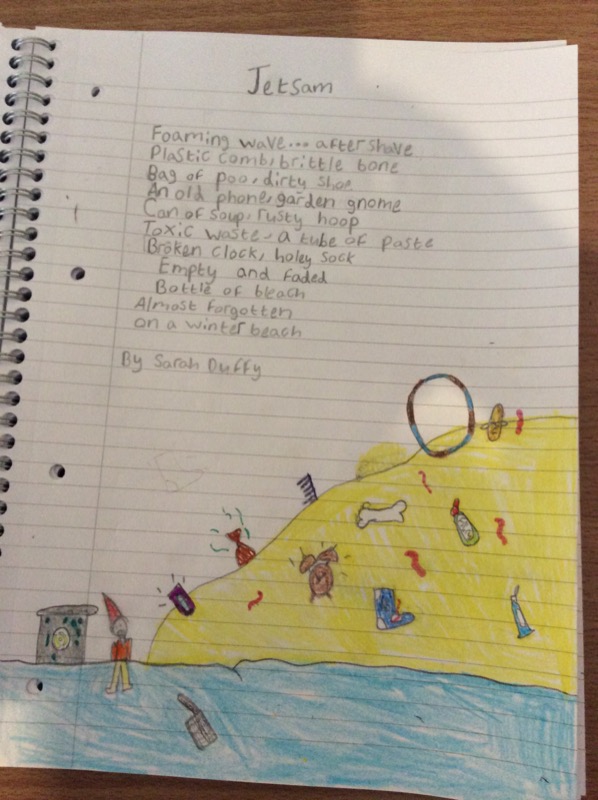 Jetsam
Foaming wave... aftershave
Plastic comb, brittle bone
Bag of poo, dirty shoe
An old phone, garden gnome
Can of soup, rusty hoop
Toxic waste, a tube of paste
Broken clock, holey sock
Empty and faded
Bottle of bleach
Almost forgotten
on a winter beach
By Sarah Duffy